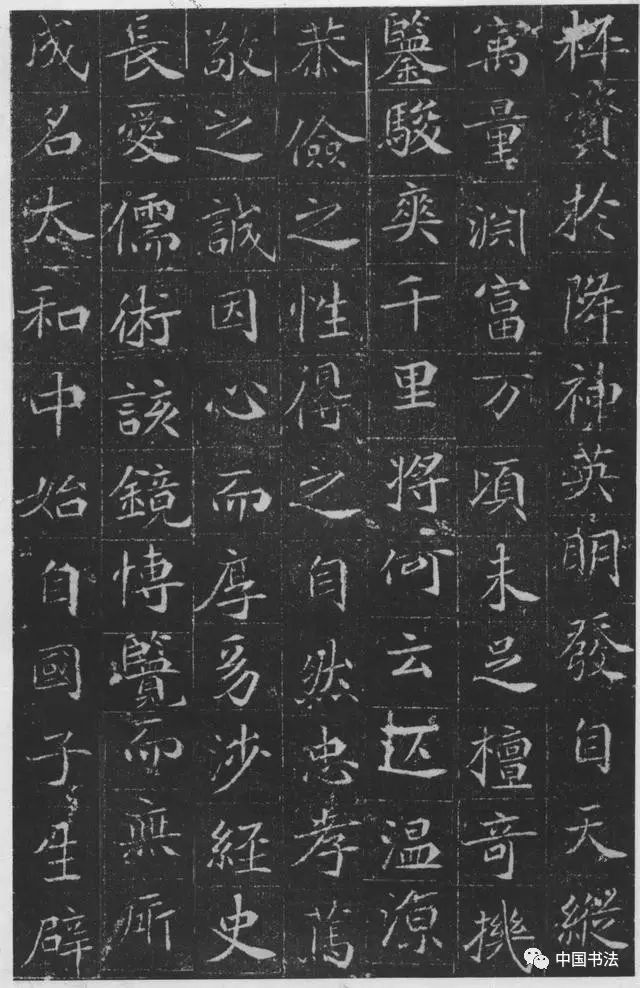 資於降神英明發自天縱
寓量淵富万頃未足檀奇機
鑒駿爽千里將何云温
恭儉之性得之自然忠孝篤
敬之誠因心而厚涉經史
長愛儒術該鏡博覽而無所
成名太和中始自國子生辟
中国书法